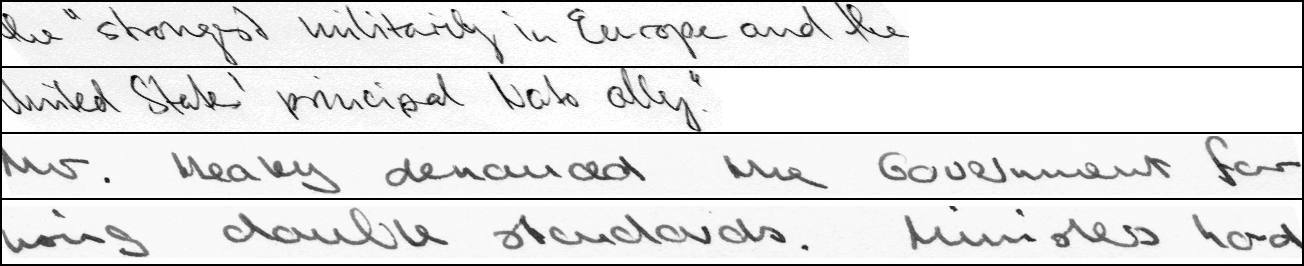 the "strongest militarily in Europe and the
United States' principal Nato ally."
Mr. Healey denounced the Government for
using double standards. Ministers had